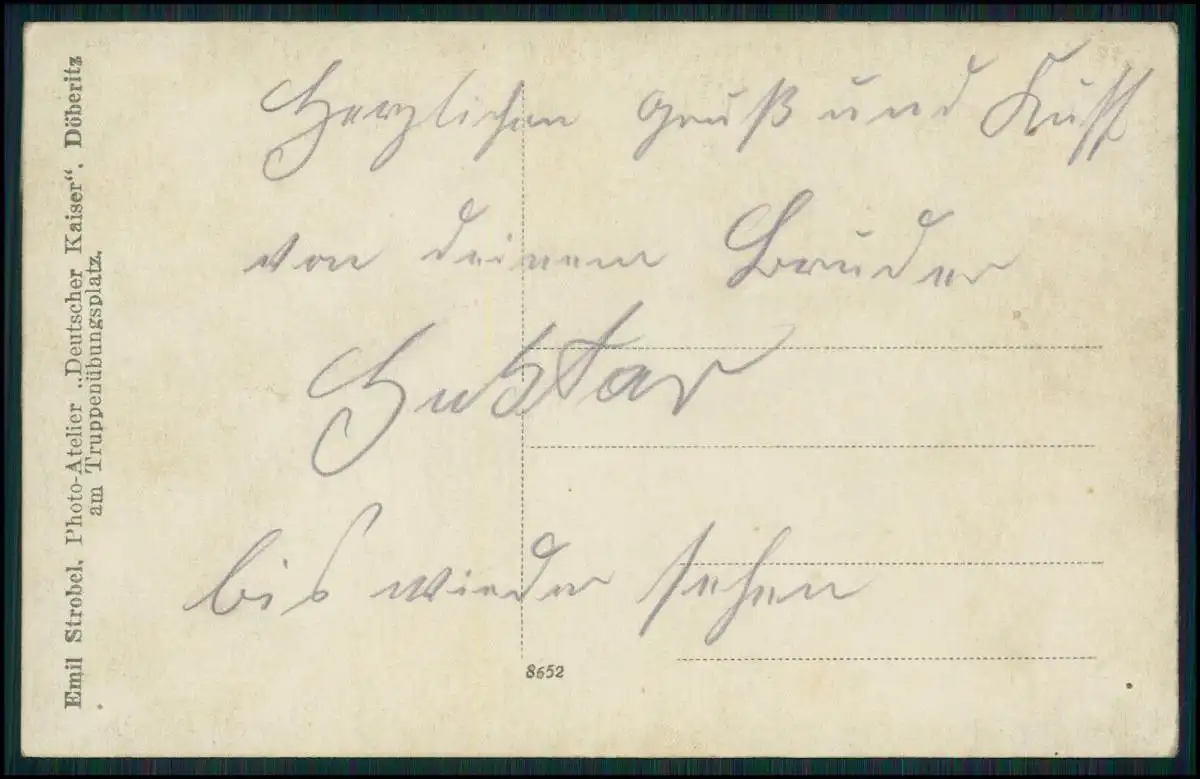 Herzlichen gruß und Kuss
von deinem Bruder
Gustav
bis wieder sehen
Emil Strobel, Photo-Atelier „Deutscher Kaiser“, Döberitz
am Truppenübungsplatz.
8652